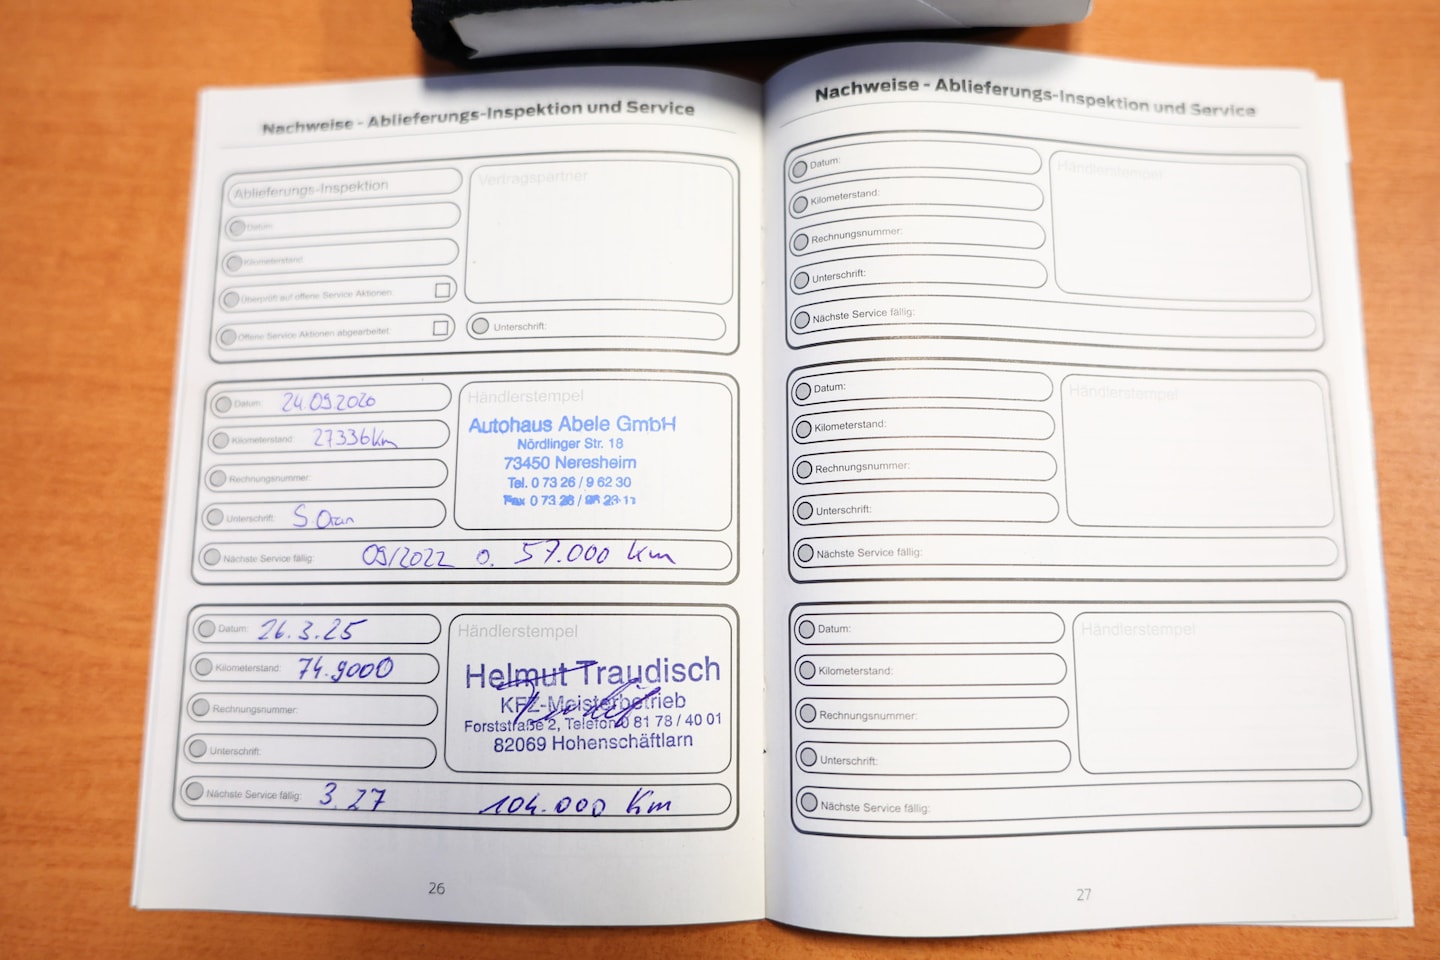 Nachweise - Ablieferungs-Inspektion und Service
Ablieferungs-Inspektion
Datum:
Kilometerstand:
Überprüft auf offene Service Aktionen:
Offene Service Aktionen abgearbeitet:
Vertragspartner
Unterschrift:
Datum: 24.09.2020
Kilometerstand: 27336km
Rechnungsnummer:
Unterschrift: S.
Nächste Service fällig: 09/2022 o. 57.000 km
Händlerstempel
Autohaus Abele GmbH
Nördlinger Str. 18
73450 Neresheim
Tel. 0 73 26 / 9 62 30
Fax 0 73 26 /
Datum: 26.3.25
Kilometerstand: 74.9000
Rechnungsnummer:
Unterschrift:
Nächste Service fällig: 3.27 104.000 Km
Händlerstempel
Helmut Traudisch
KFZ-Meisterbetrieb
Forststraße 2, Telefon 0 81 78 / 40 01
82069 Hohenschäftlarn
26
Nachweise - Ablieferungs-Inspektion und Service
Datum:
Kilometerstand:
Rechnungsnummer:
Unterschrift:
Nächste Service fällig:
Händlerstempel
Datum:
Kilometerstand:
Rechnungsnummer:
Unterschrift:
Nächste Service fällig:
Händlerstempel
Datum:
Kilometerstand:
Rechnungsnummer:
Unterschrift:
Nächste Service fällig:
Händlerstempel
27